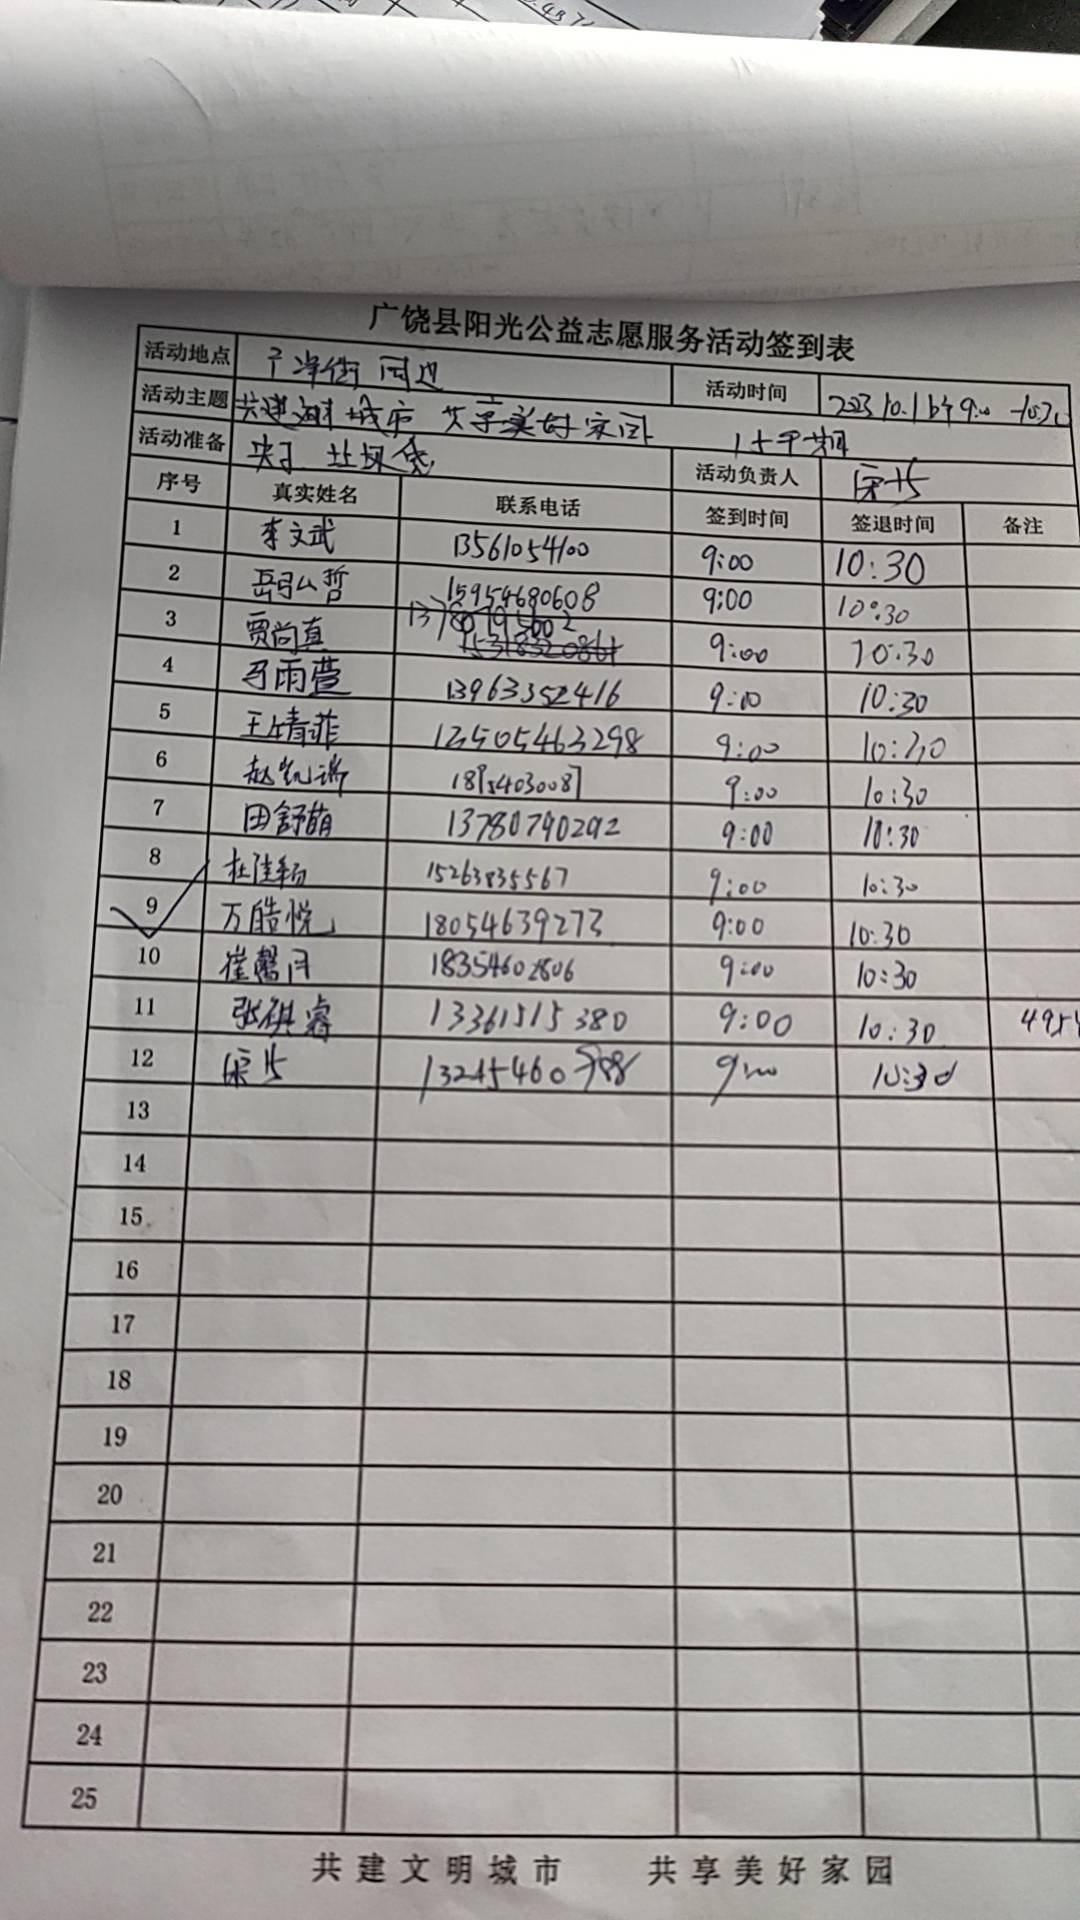 广饶县阳光公益志愿服务活动签到表
活动地点 周边 活动时间 2023.10.1 9:00-10:30
活动主题 共建文明城市 共享美好家园
活动准备 夹子 垃圾袋 活动负责人
序号 真实姓名 联系电话 签到时间 签退时间 备注
1 李文武 13561054100 9:00 10:30
2 哲 15954680608 9:00 10:30
3 贾尚真 13780795602 9:00 10:30
4 雨萱 13963352416 9:00 10:30
5 王婧菲 13505463298 9:00 10:30
6 赵凯瑞 9:00 10:30
7 田舒萌 13780790292 9:00 10:30
8 杜佳 15263835567 9:00 10:30
9 万皓悦 18054639273 9:00 10:30
10 崔馨月 18354602806 9:00 10:30
11 张祺睿 13361515380 9:00 10:30
12 9:00 10:30
13
14
15
16
17
18
19
20
21
22
23
24
25
共建文明城市 共享美好家园